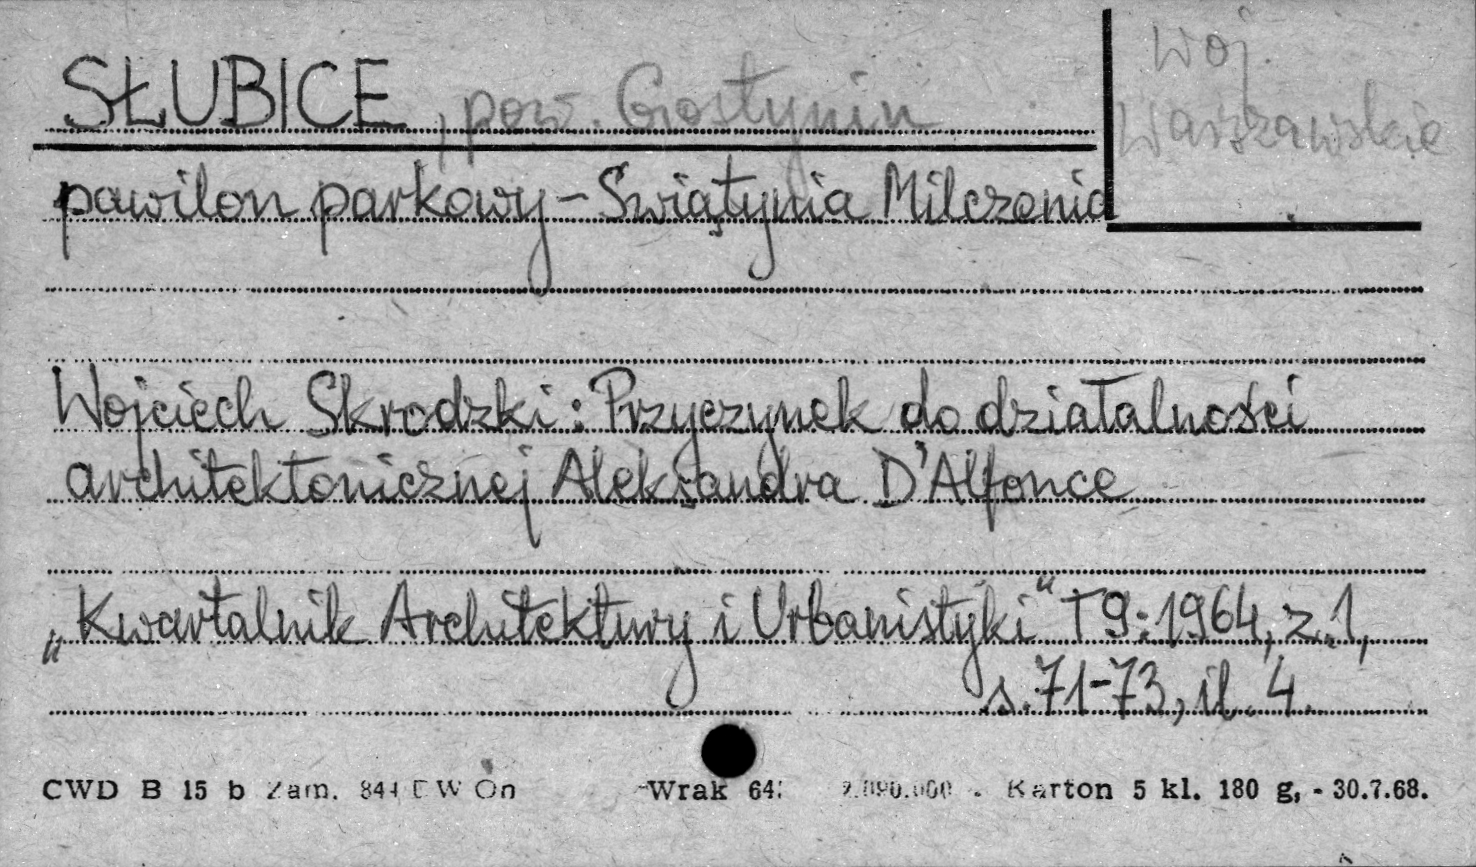 SŁUBICE, pow. Gostynin
woj. Warszawskie
pawilon parkowy – Świątynia Milczenia
Wojciech Skrodzki: Przyczynek do działalności
architektonicznej Aleksandra D'Alfonce
„Kwartalnik Architektury i Urbanistyki" T 9: 1964, z. 1,
s. 71-73, il. 4.
CWD B 15 b Zam. DW On Wrak - Karton 5 kl. 180 g, - 30.7.68.